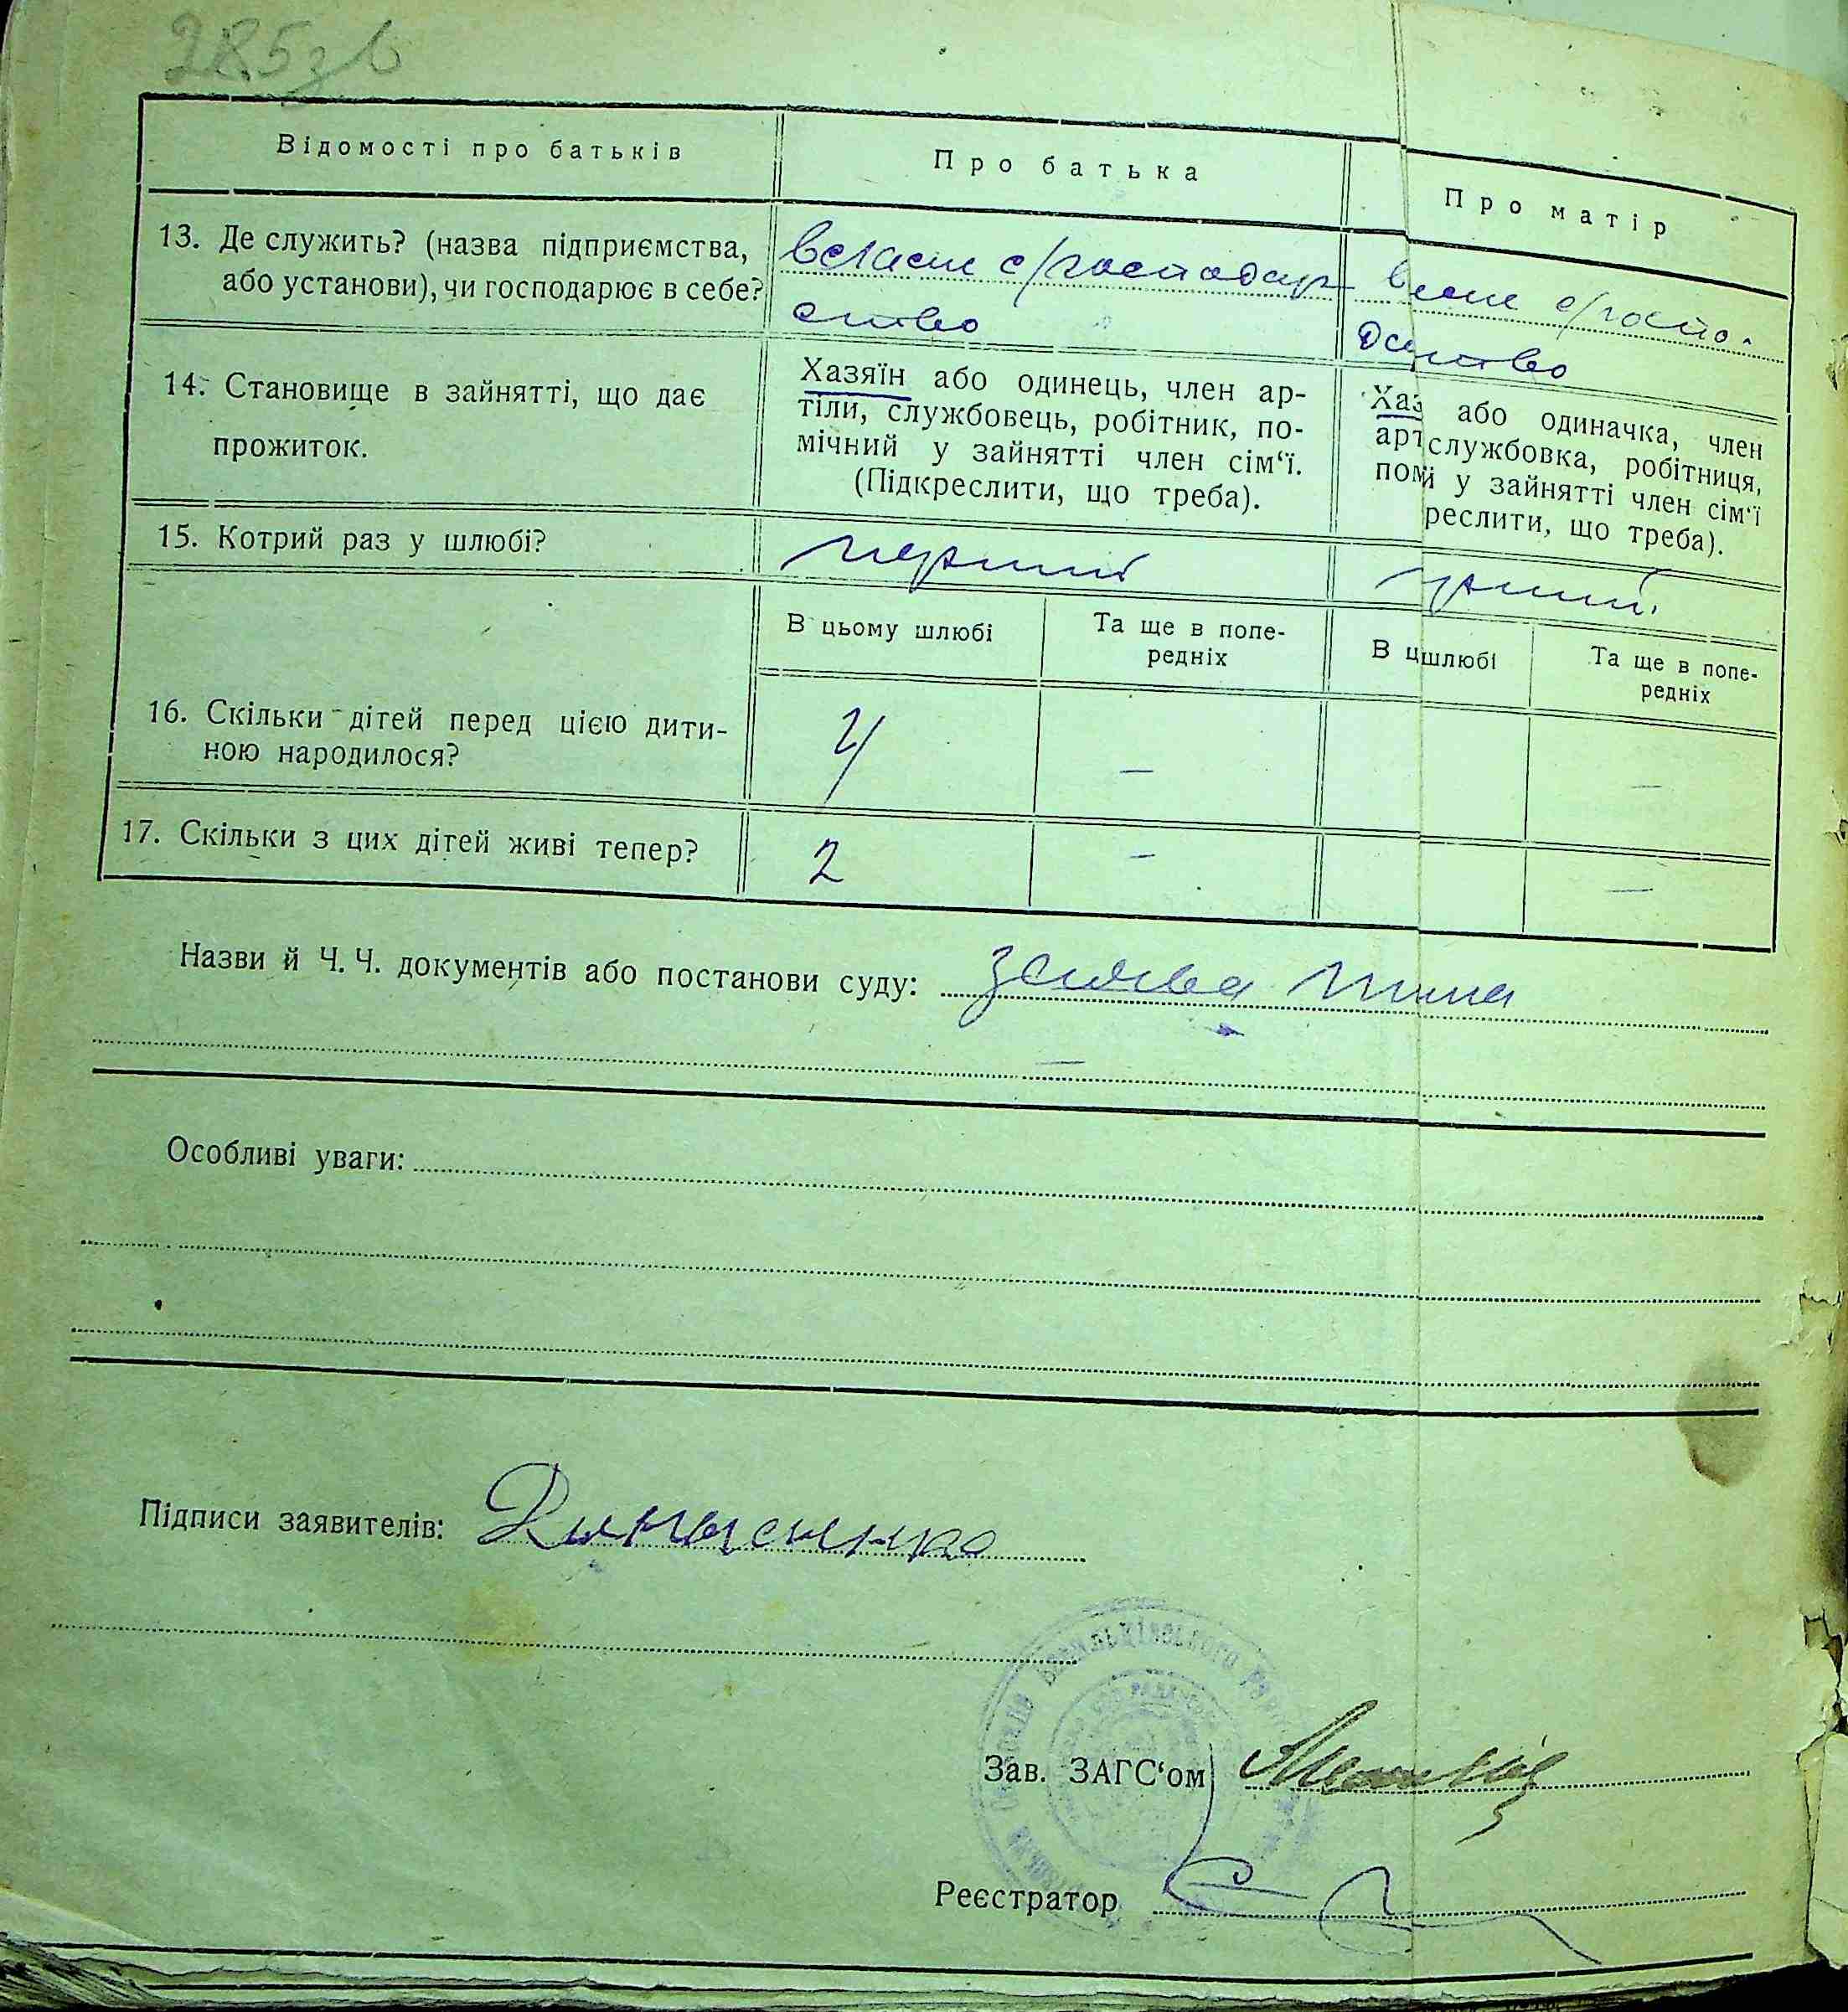 285зв
Відомості про батьків
Про батька
Про матір
13. Де служить? (назва підприємства,
або установи), чи господарює в себе?
власне с/господар
ство
власне с/госпо-
дарство
14. Становище в зайнятті, що дає
прожиток.
Хазяїн або одинець, член ар-
тіли, службовець, робітник, по-
мічний у зайнятті член сім‘ї.
(Підкреслити, що треба).
Хаз або одиначка, член
арт службовка, робітниця,
помі у зайнятті член сім‘ї
реслити, що треба).
15. Котрий раз у шлюбі?
перший
перший
В цьому шлюбі
Та ще в попе-
редніх
В ц шлюбі
Та ще в попе-
редніх
16. Скільки дітей перед цією дити-
ною народилося?
4
—
—
17. Скільки з цих дітей живі тепер?
2
—
—
Назви й Ч. Ч. документів або постанови суду: заява
—
Особливі уваги:
Підписи заявителів:
Зав. ЗАГС‘ом
Реєстратор